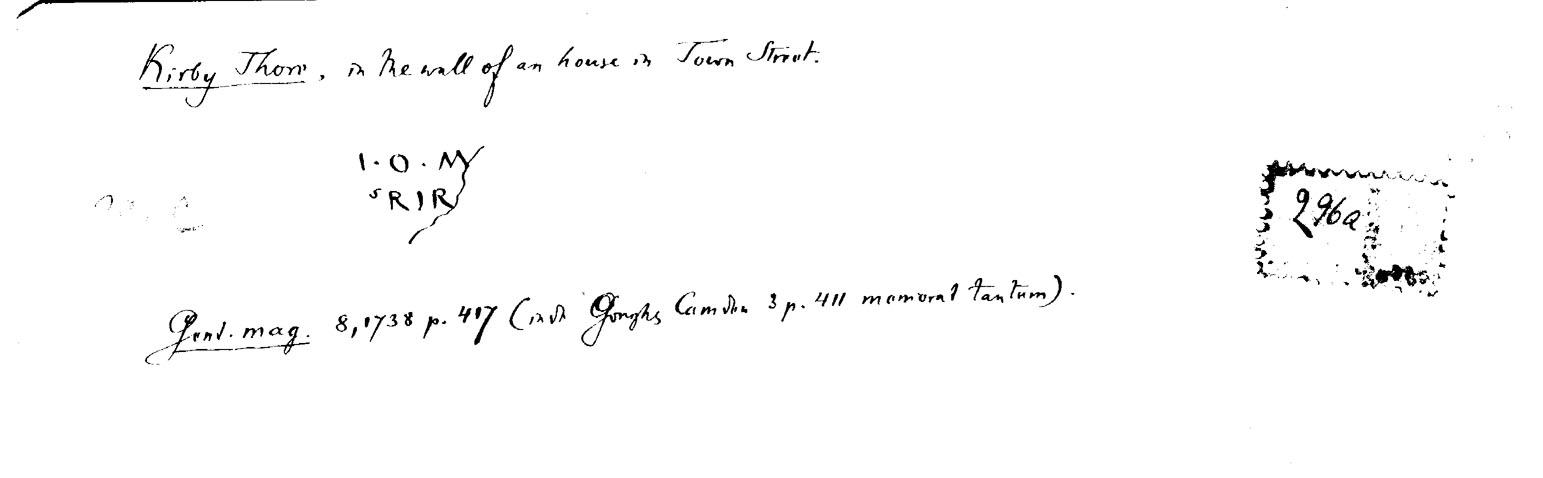 Kirby Thore, in the wall of an house in Town Street.
I · O · M
S R I R
296a
Gent. mag. 8, 1738 p. 417 (inde Goughs Camden 3 p. 411 memorat tantum).